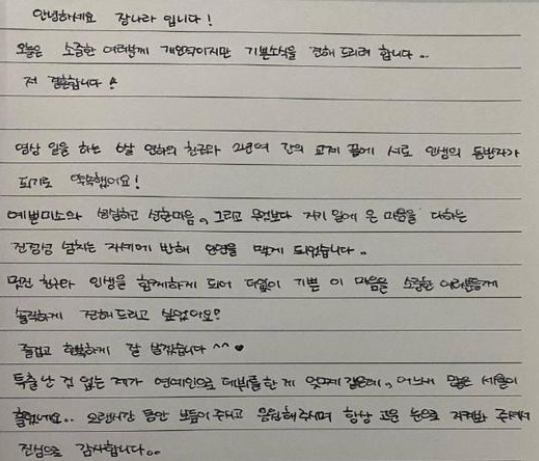 안녕하세요 장나라 입니다!
오늘은 소중한 여러분께 개인적이지만 기쁜소식을 전해 드리려 합니다..
저 결혼합니다!
영상 일을 하는 6살 연하의 친구와 2년여 간의 교제 끝에 서로 인생의 동반자가
되기로 약속했어요!
예쁜미소와 성실하고 선한마음, 그리고 무엇보다 자기 일에 온 마음을 다하는
진정성 넘치는 자세에 반해 인연을 맺게 되었습니다..
멋진 친구와 인생을 함께하게 되어 더없이 기쁜 이 마음을 소중한 여러분들께
솔직하게 전해드리고 싶었어요?
즐겁고 행복하게 잘 살겠습니다 ^^ ♥
특출난 것 없는 제가 연예인으로 데뷔를한 게 엊그제 같은데, 어느새 많은 세월이
흘렀네요.. 오랜시간 동안 보듬어 주시고 응원해주시며 항상 고운 눈으로 지켜봐 주셔서
진심으로 감사합니다..